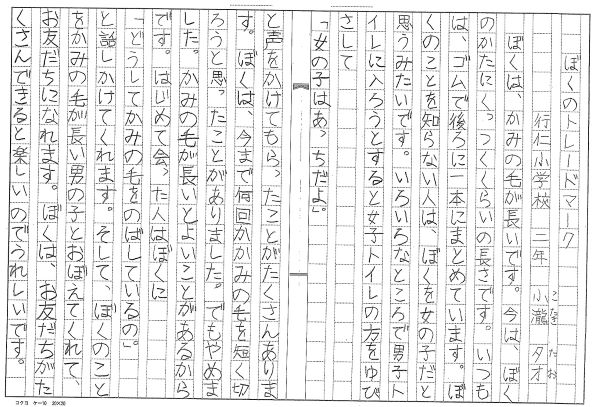 ぼくのトレードマーク
行仁小学校　二年　小瀧　夕オ
こたき　たお
ぼくは、かみの毛が長いです。今は、ぼく
のかたにくっつくくらいの長さです。いつも
は、ゴムで後ろに一本にまとめています。ぼ
くのことを知らない人は、ぼくを女の子だと
思うみたいです。いろいろなところで男子ト
イレに入ろうとすると女子トイレの方をゆび
さして
「女の子はあっちだよ。」
と声をかけてもらったことがたくさんありま
す。ぼくは、今まで何回かかみの毛を短く切
ろうと思ったことがありました。でもやめま
した。かみの毛が長いとよいことがあるから
です。はじめて会った人はぼくに
「どうしてかみの毛をのばしているの。」
と話しかけてくれます。そして、ぼくのこと
をかみの毛が長い男の子とおぼえてくれて、
お友だちになれます。ぼくは、お友だちがた
くさんできると楽しいのでうれしいです。
コクヨ　ケー10　20×20